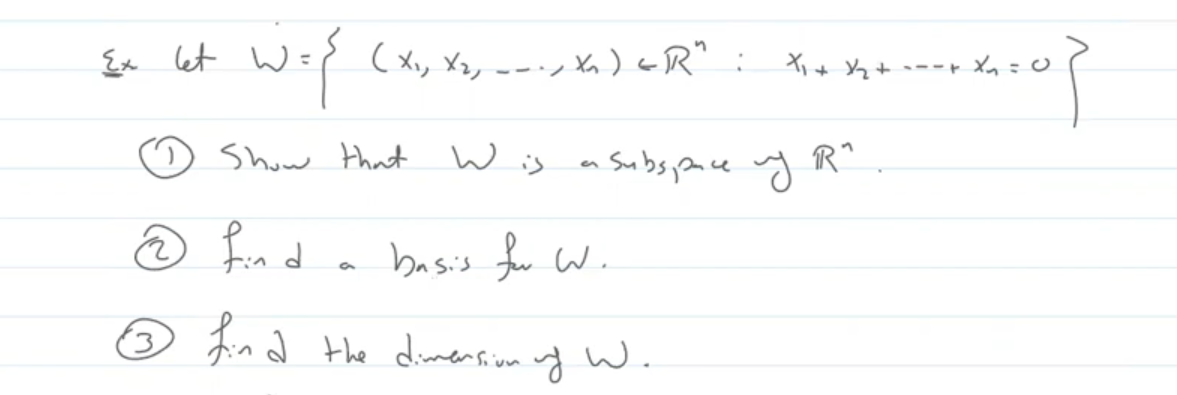 Ex let W = { (x₁, x₂, ---., xₙ) ∈ ℝⁿ : x₁ + x₂ + ---- + xₙ = 0 }
① Show that W is a subspace of ℝⁿ.
② find a basis for W.
③ find the dimension of W.